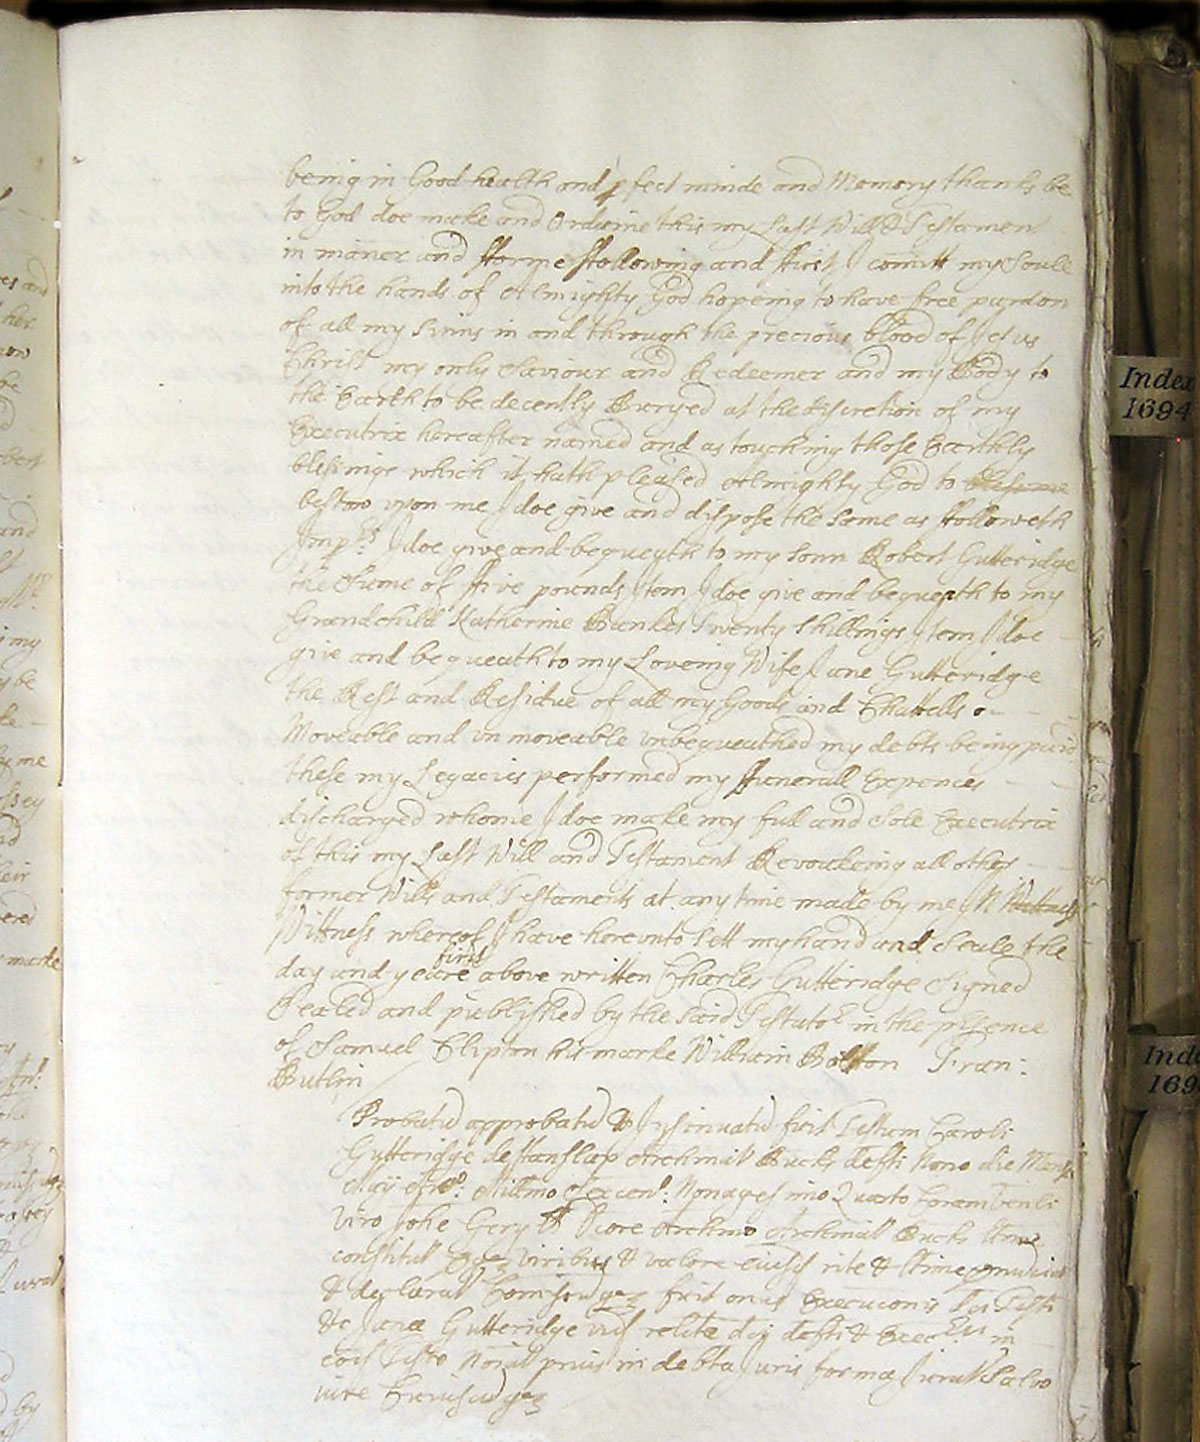 being in Good health and pfect minde and Memory thanks be
to God doe make and Ordaine this my Last Will & Testament
in maner and fforme ffollowing and ffirst I comitt my Soule
into the hands of Almighty God hopeing to have free pardon
of all my Sinns in and through the precious blood of Jesus
Christ my only Saviour and Redeemer and my Body to
the Earth to be decently Buryed at the discretion of my
Executrix hereafter named and as touching those Earthly
blessings which it hath pleased Almighty God to
bestow upon me I doe give and dispose the same as ffolloweth
Imprs I doe give and bequeath to my sonn Robert Gutteridge
the Sume of ffive pounds Item I doe give and bequeath to my
Grandchild Katherine Bankes Twenty shillings Item I doe
give and bequeath to my Loveing Wife Jane Gutteridge
the Rest and Residue of all my Goods and Chattells
Moveable and unmoveable unbequeathed my debts being paid
these my Legacies performed my ffunerall Expences
discharged whome I doe make my full and Sole Executrix
of this my Last Will and Testament Revoakeing all other
former Wills and Testaments at any time made by me IN
Wittness whereof I have hereunto sett my hand and Seale the
day and yeare first above written Charles Gutteridge Signed
Sealed and published by the said Testator in the psence
of Samuel Clipton his marke William Bolton Fran:
Butlin
Probatu approbatu & Insinuatu fuit Testum Caroli
Gutteridge de Hanslap Archinat Bucks defti Nono die Mensis
Maij Millmo Sexcen Nonagesimo Quarto Coram venli
Viro Johe Gery Archino Archinat Bucks
constitut viribus & valore eiusd rite & ltime
& declarat fuit onus Execuconis Testi
&c Janæ Gutteridge vid relictæ dij defti & Execri in
eod Testo noiat prius in debta Juris forma Jurat Salvo
iure Cuiuscunq